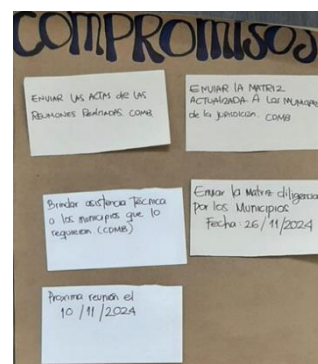 COMPROMISOS
ENVIAR LAS ACTAS de LAS
REUNIONES REALIZADAS. CDMB
ENVIAR LA MATRIZ
ACTUALIZADA A LOS MUNICIPIOS
de la JURISDICCION. CDMB
Brindar asistencia Técnica
a los municipios que lo
requieran (CDMB)
Enviar la Matriz diligencia
por los Municipios
Fecha: 26/11/2024
Proxima reunión el
10/11/2024